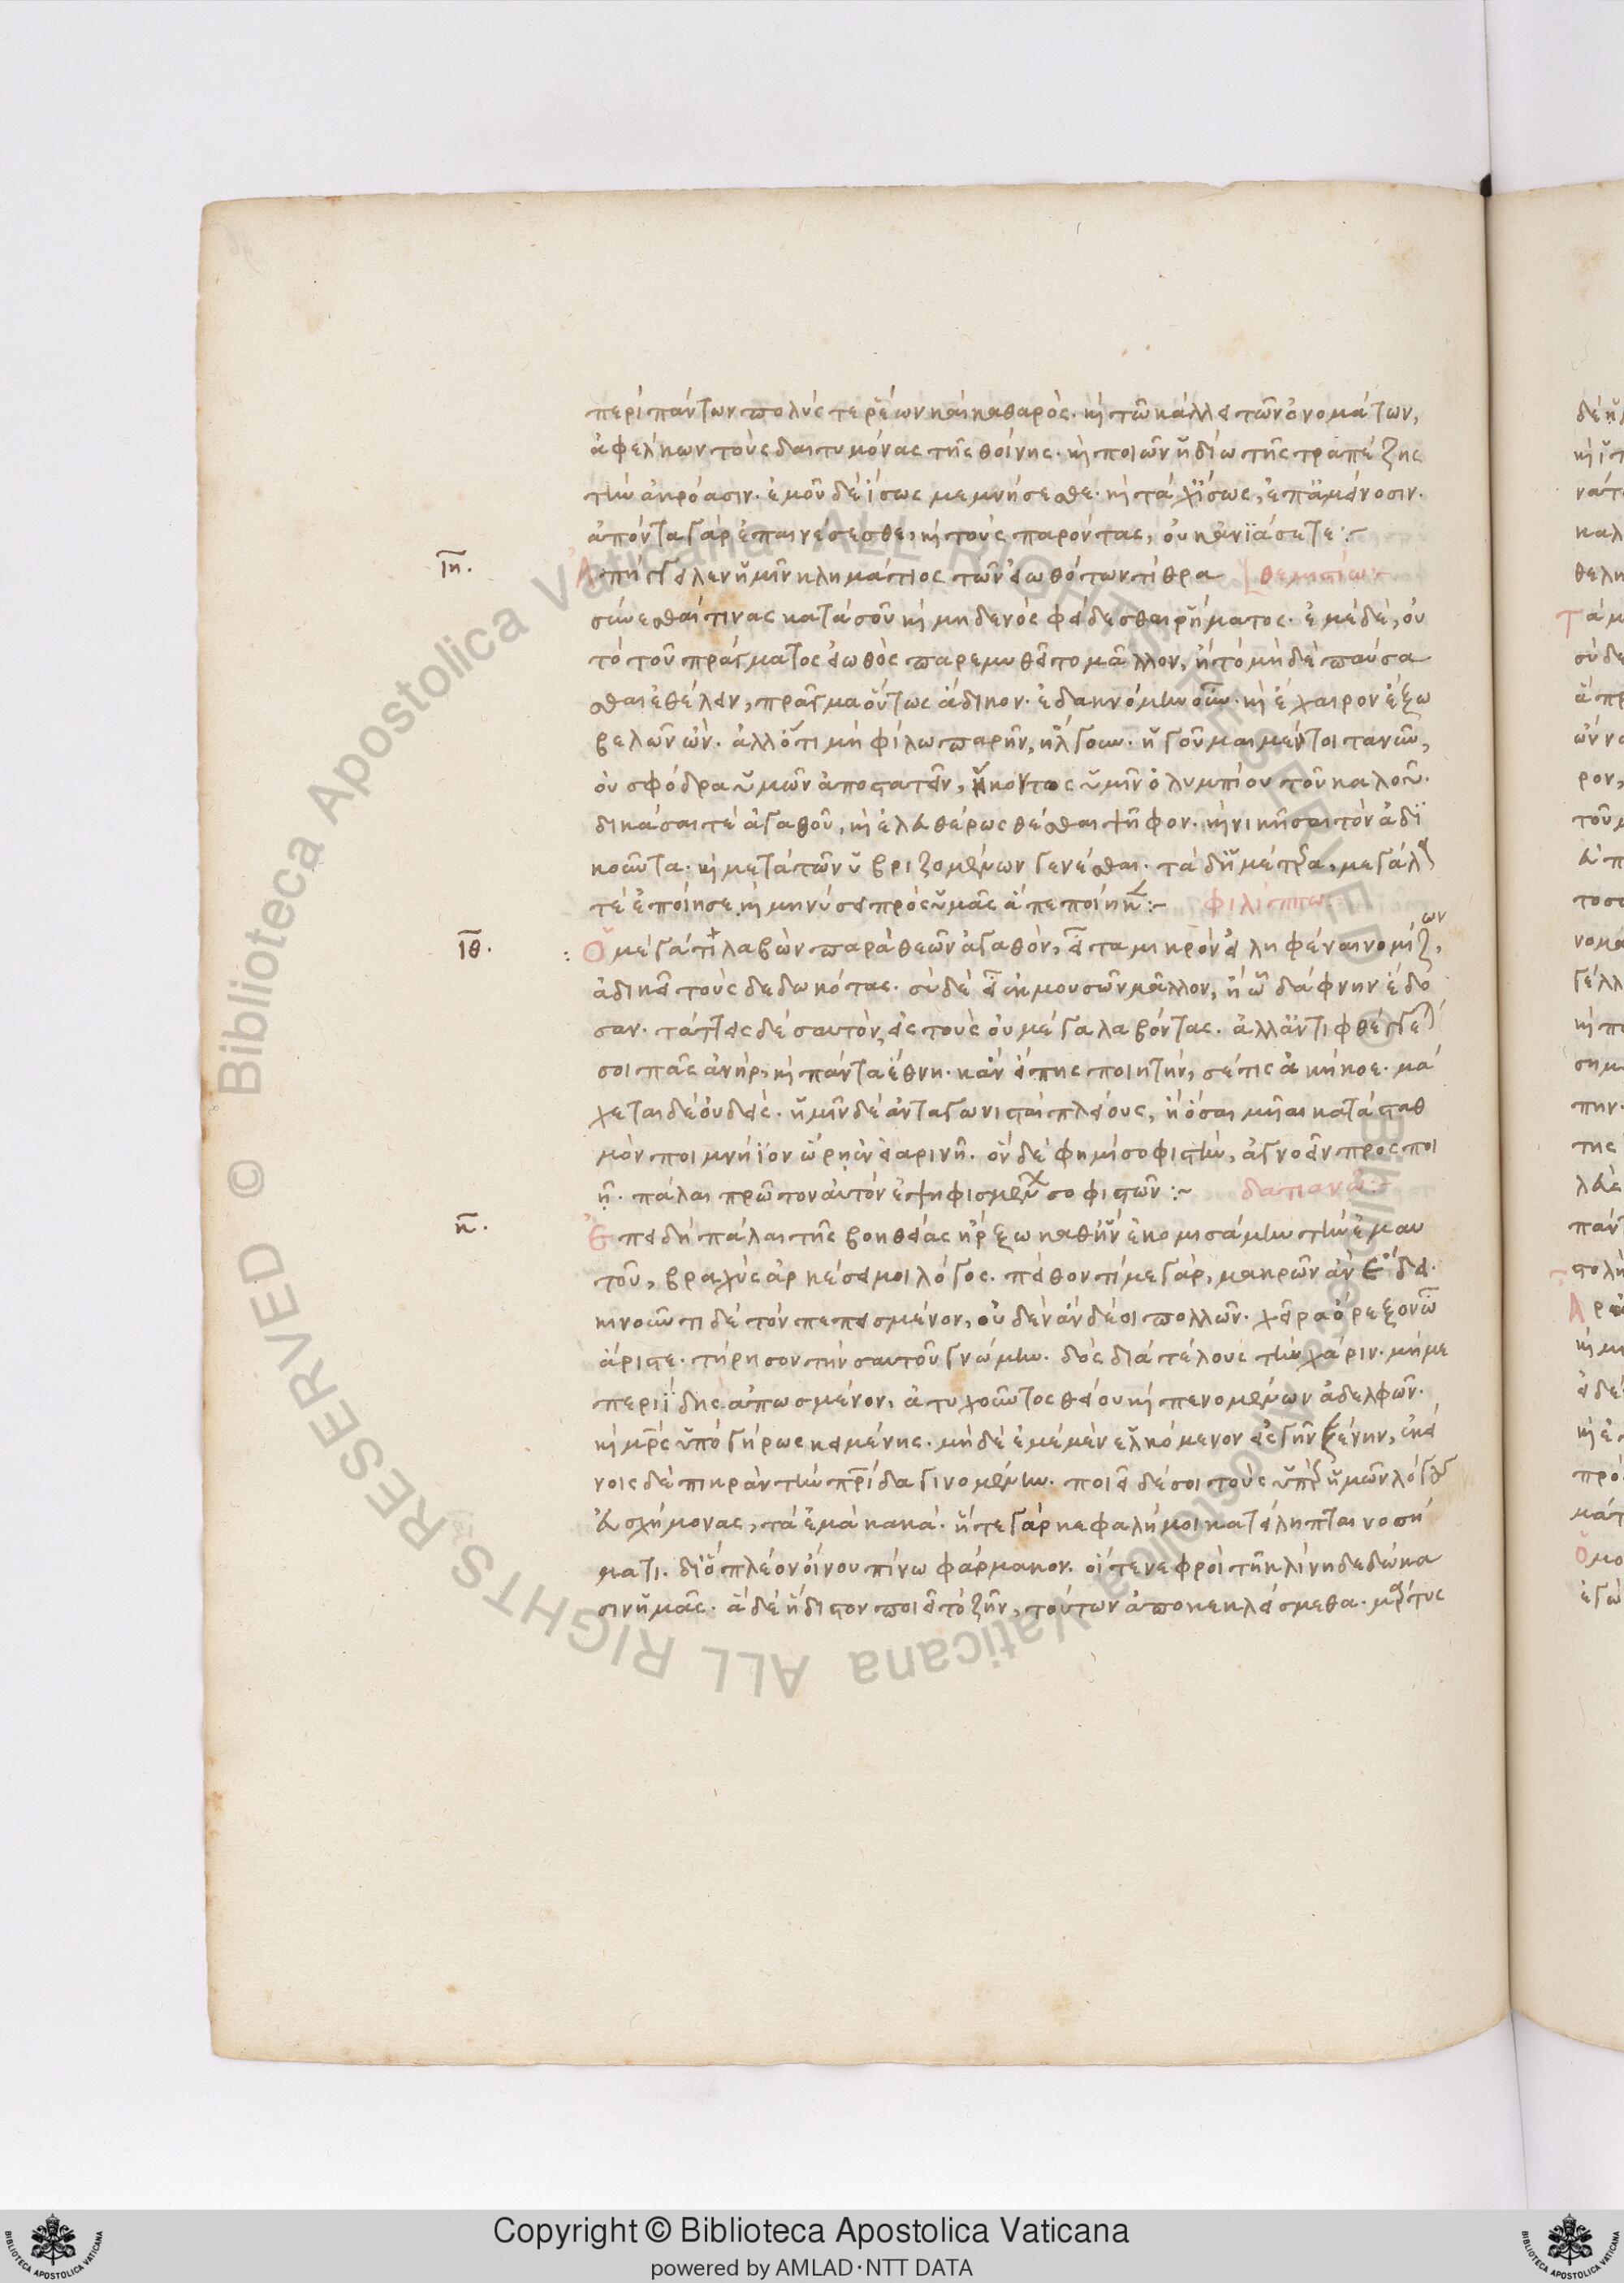 περὶ πάντων πολύς τε ῥέων καὶ καθαρός. κ(αὶ) τῶ κάλλει τῶν ὀνομάτων,
ἀφέλκων τοὺς δαιτυμόνας τῆς θοίνης. κ(αὶ) ποιῶν ἡδίω τῆς τραπέζης
τὴν ἀκρόασιν. ἐμοῦ δὲ ἴσως μεμνήσεσθε. κ(αὶ) τάχ ἴσως, ἐπ ἀμείνοσιν.
ἀπόντα γὰρ ἐπαινέσεσθε, κ(αὶ) τοὺς παρόντας, οὐκ ἀνιάσετε :~
ιη. Ἀπήγγειλεν ἡμῖν κλημάτιος τῶν εἰωθότων τί θρα θεμιστίω
σύνεσθαί τινας κατὰ σοῦ κ(αὶ) μηδενὸς φείδεσθαι ῥήματος. ἐμὲ δὲ, οὐ
τὸ τοῦ πράγματος εἰωθὸς παρεμυθεῖτο μᾶλλον, ἢ τὸ μηδὲ παύσα
σθαι ἐθέλειν, πρᾶγμα οὕτως ἄδικον. ἐδακνόμην οὖν. κ(αὶ) ἔχαιρον ἔξω
βελῶν ὤν. ἀλλ ὅτι μὴ φίλω παρῆν, ἤλγουν. ἡγοῦμαι μέντοι τανῦν,
οὐ σφόδρα ὑμῶν ἀποστατεῖν, ἥκοντος ὑμῖν ὀλυμπίου τοῦ καλοῦ.
δικάσαι τὲ ἀγαθοῦ, κ(αὶ) ἐλευθέρως θέσθαι ψῆφον. κ(αὶ) νικῆσαι τὸν ἀδι
κοῦντα. κ(αὶ) μετὰ τῶν ὑβριζομένων γενέσθαι. τὰ δ ἡμέτερα, μεγάλα
τὲ ἐποίησε, κ(αὶ) μηνύσει πρὸς ὑμᾶς ἃ πεποίηκε :~ φιλίππω
ιθ. Ὁ μέγα τι λαβὼν παρὰ θεῶν ἀγαθὸν, εἶτα μικρὸν εἰληφέναι νομίζων,
ἀδικεῖ τοὺς δεδωκότας. σὺ δὲ εἶ ἐκ μουσῶν μᾶλλον, ἢ ὧ δάφνην ἔδο
σαν. τάττεις δὲ σαυτὸν, εἰς τοὺς οὐ μέγα λαβόντας. ἀλλ ἀντιφθέγγεταί
σοι πᾶς ἀνὴρ, κ(αὶ) πάντα ἔθνη. κἂν εἴπης ποιητὴν, σέ τις ἀκήκοε. μά
χεται δὲ οὐδείς. ἡμῖν δὲ ἀνταγωνισταὶ πλείους, ἢ ὅσαι μυῖαι κατὰ σταθ
μὸν ποιμνήϊον ὥρη ἐν εἰαρινῆ. ὃν δὲ φημὶ σοφιστὴν, ἀγνοεῖν προσποι
ῆ. πάλαι πρῶτον αὐτὸν ἐψηφισμένων σοφιστῶν :~ δατιανῶ :~
κ. Ἐπειδὴ πάλαι τῆς βοηθείας ἦρξω καθ ἣν ἐκομισάμην τὴν ἐμαυ
τοῦ, βραχὺς ἀρκέσει μοι λόγος. πείθοντί με γὰρ, μακρῶν ἂν ἔδει.
κινοῦντι δὲ τὸν πεπεισμένον, οὐδὲν ἂν δέοι πολλῶν. χεῖρα ὄρεξον ὦ
ἄριστε. τήρησον τὴν σαυτοῦ γνώμην. δὸς διὰ τέλους τὴν χάριν. μή με
περιίδης ἀπωσμένον, ἀτυχοῦντος θείου κ(αὶ) πενομένων ἀδελφῶν.
κ(αὶ) μητρὸς ὑπὸ γήρως κειμένης. μηδὲ ἐμὲ μὲν ἑλκόμενον εἰς γῆν ξένην, ἐκεί
νοις δὲ πικρὰν τὴν πατρίδα γινομένην. ποιεῖ δέ σοι τοὺς ὑπὲρ ἡμῶν λόγους
εὐσχήμονας, τὰ ἐμὰ κακά. ἥ τε γὰρ κεφαλή μοι κατείληπται νοσή
ματι. δι ὃ πλέον οἴνου πίνω φάρμακον. οἵ τε νεφροὶ τῆ κλίνη δεδώκα
σιν ἡμᾶς. ἃ δὲ ἥδιστον ποιεῖ τὸ ζῆν, τούτων ἀποκεκλείσμεθα. μάρτυς
Copyright © Biblioteca Apostolica Vaticana
powered by AMLAD·NTT DATA
© Biblioteca Apostolica Vaticana ALL RIGHTS RESERVED